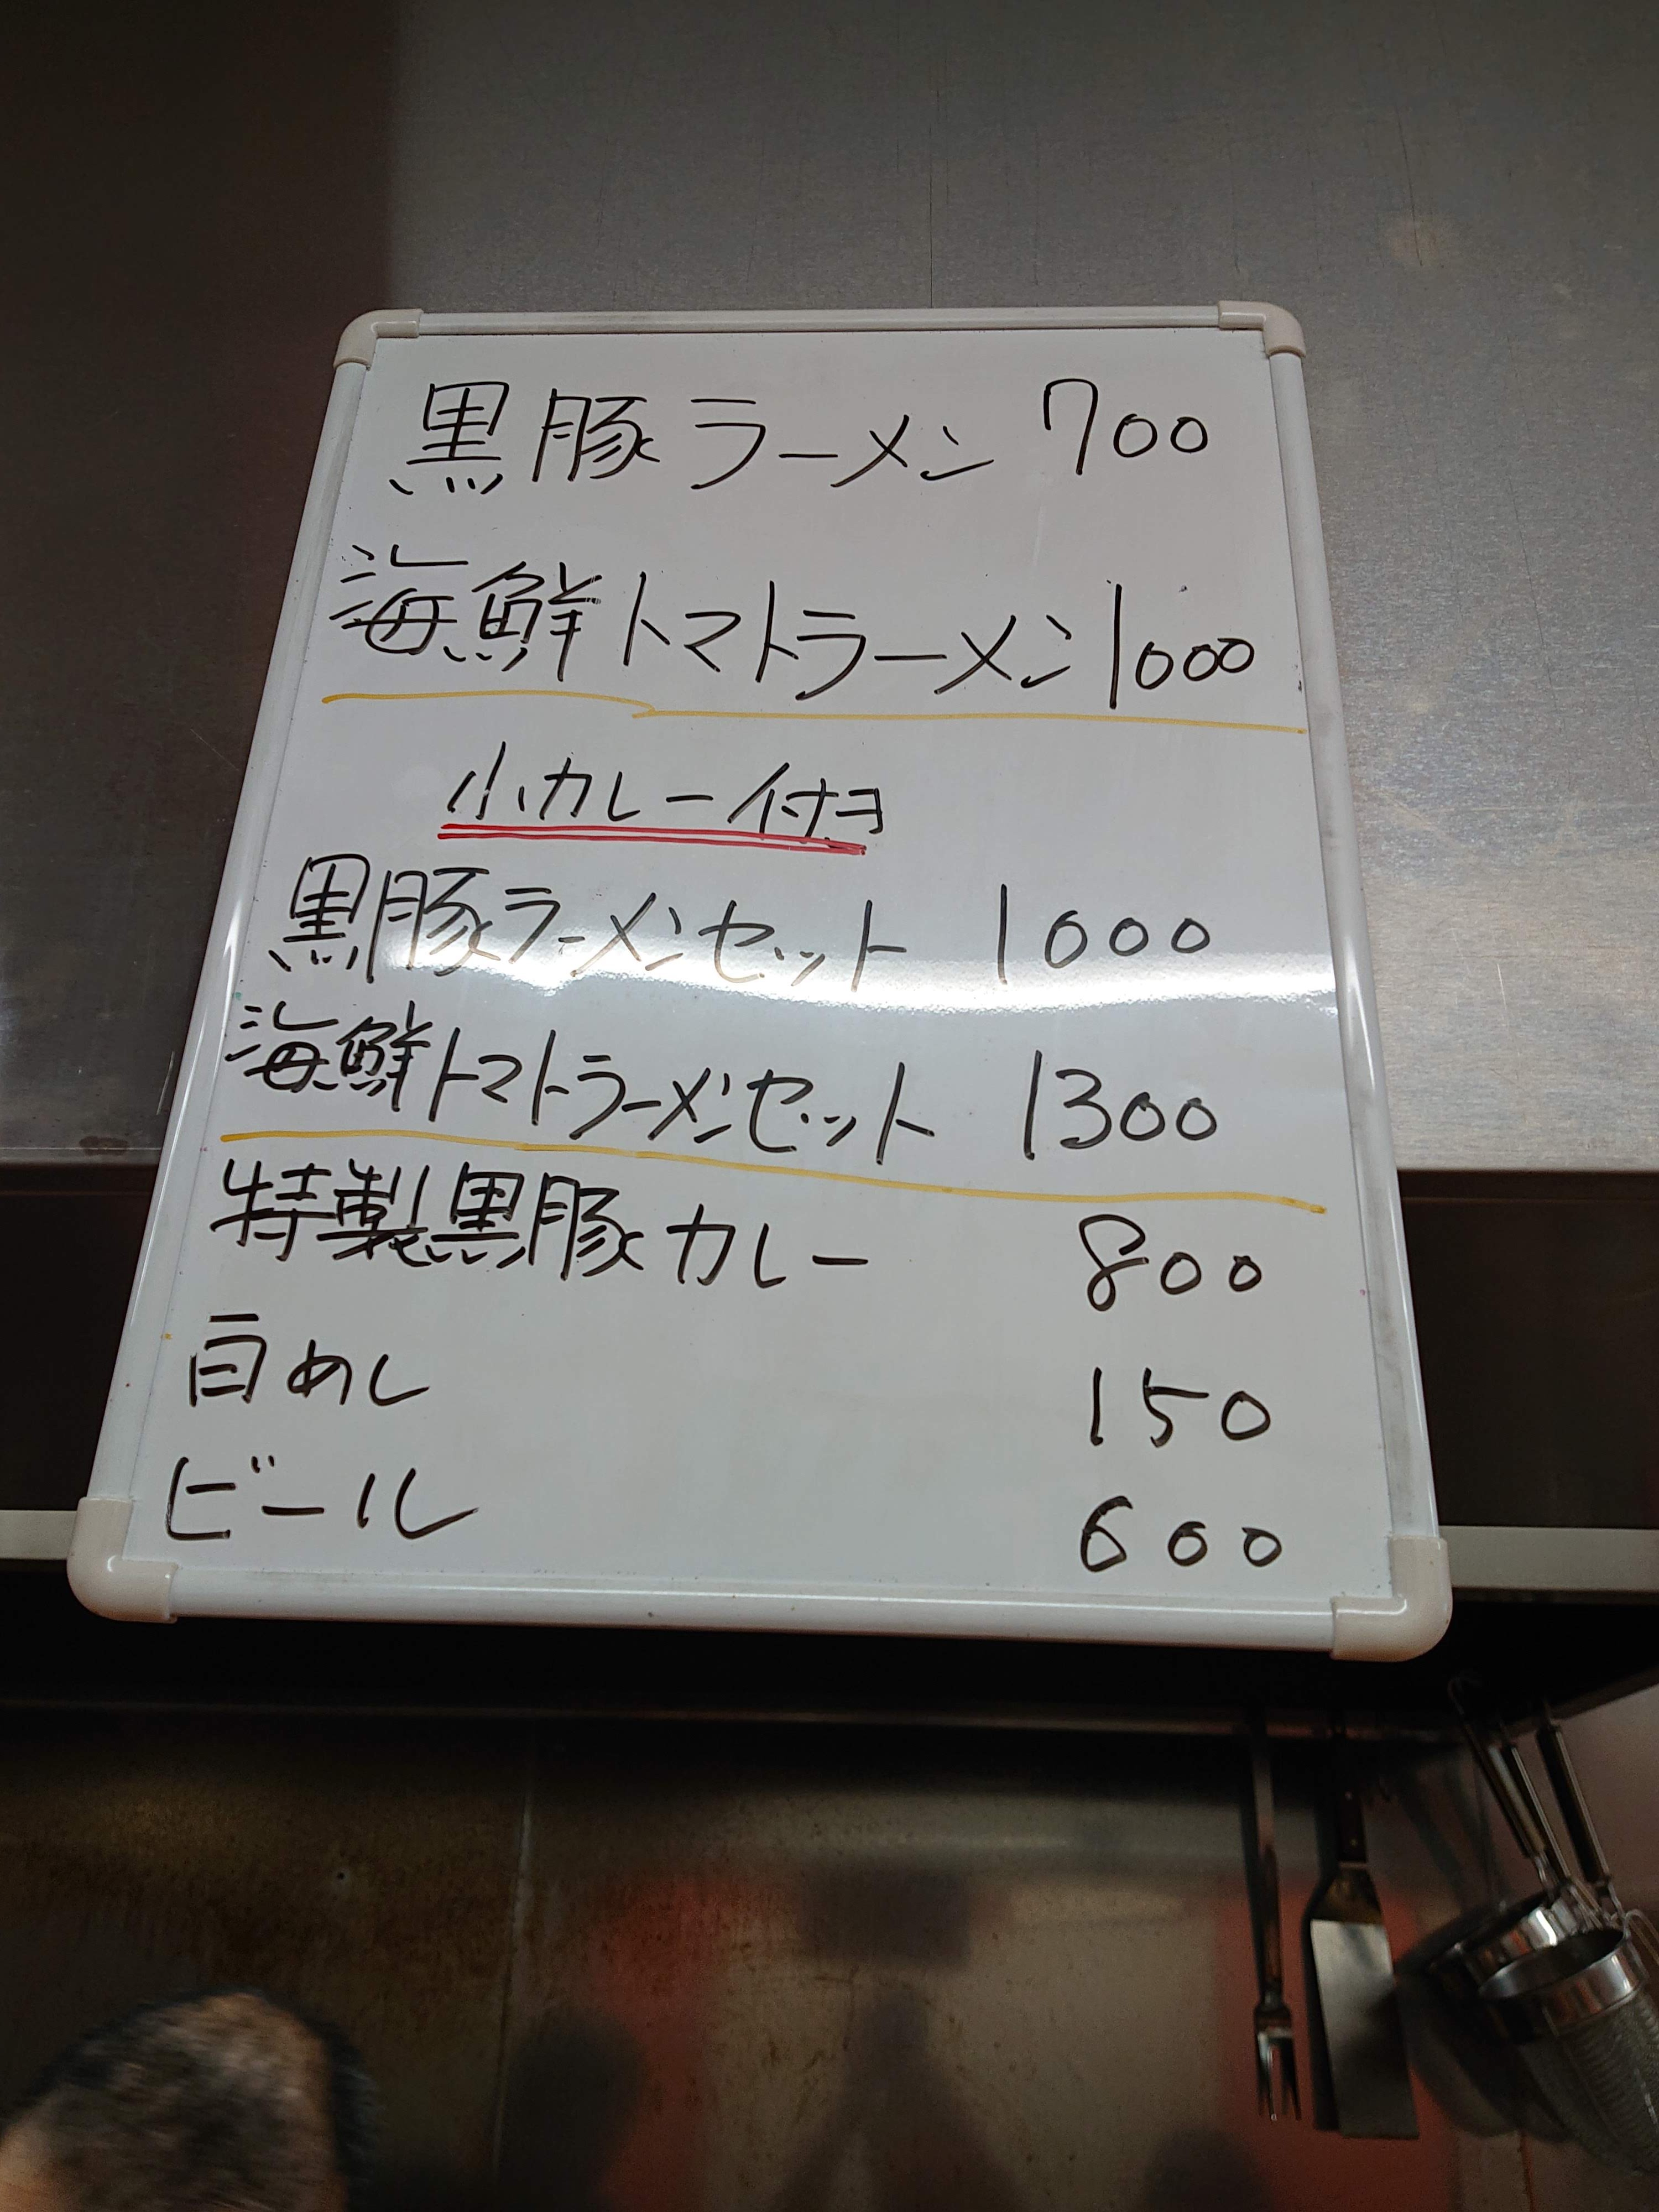 黒豚ラーメン 700
海鮮トマトラーメン 1000
小カレー付き
黒豚ラーメンセット 1000
海鮮トマトラーメンセット 1300
特製黒豚カレー 800
白めし 150
ビール 600